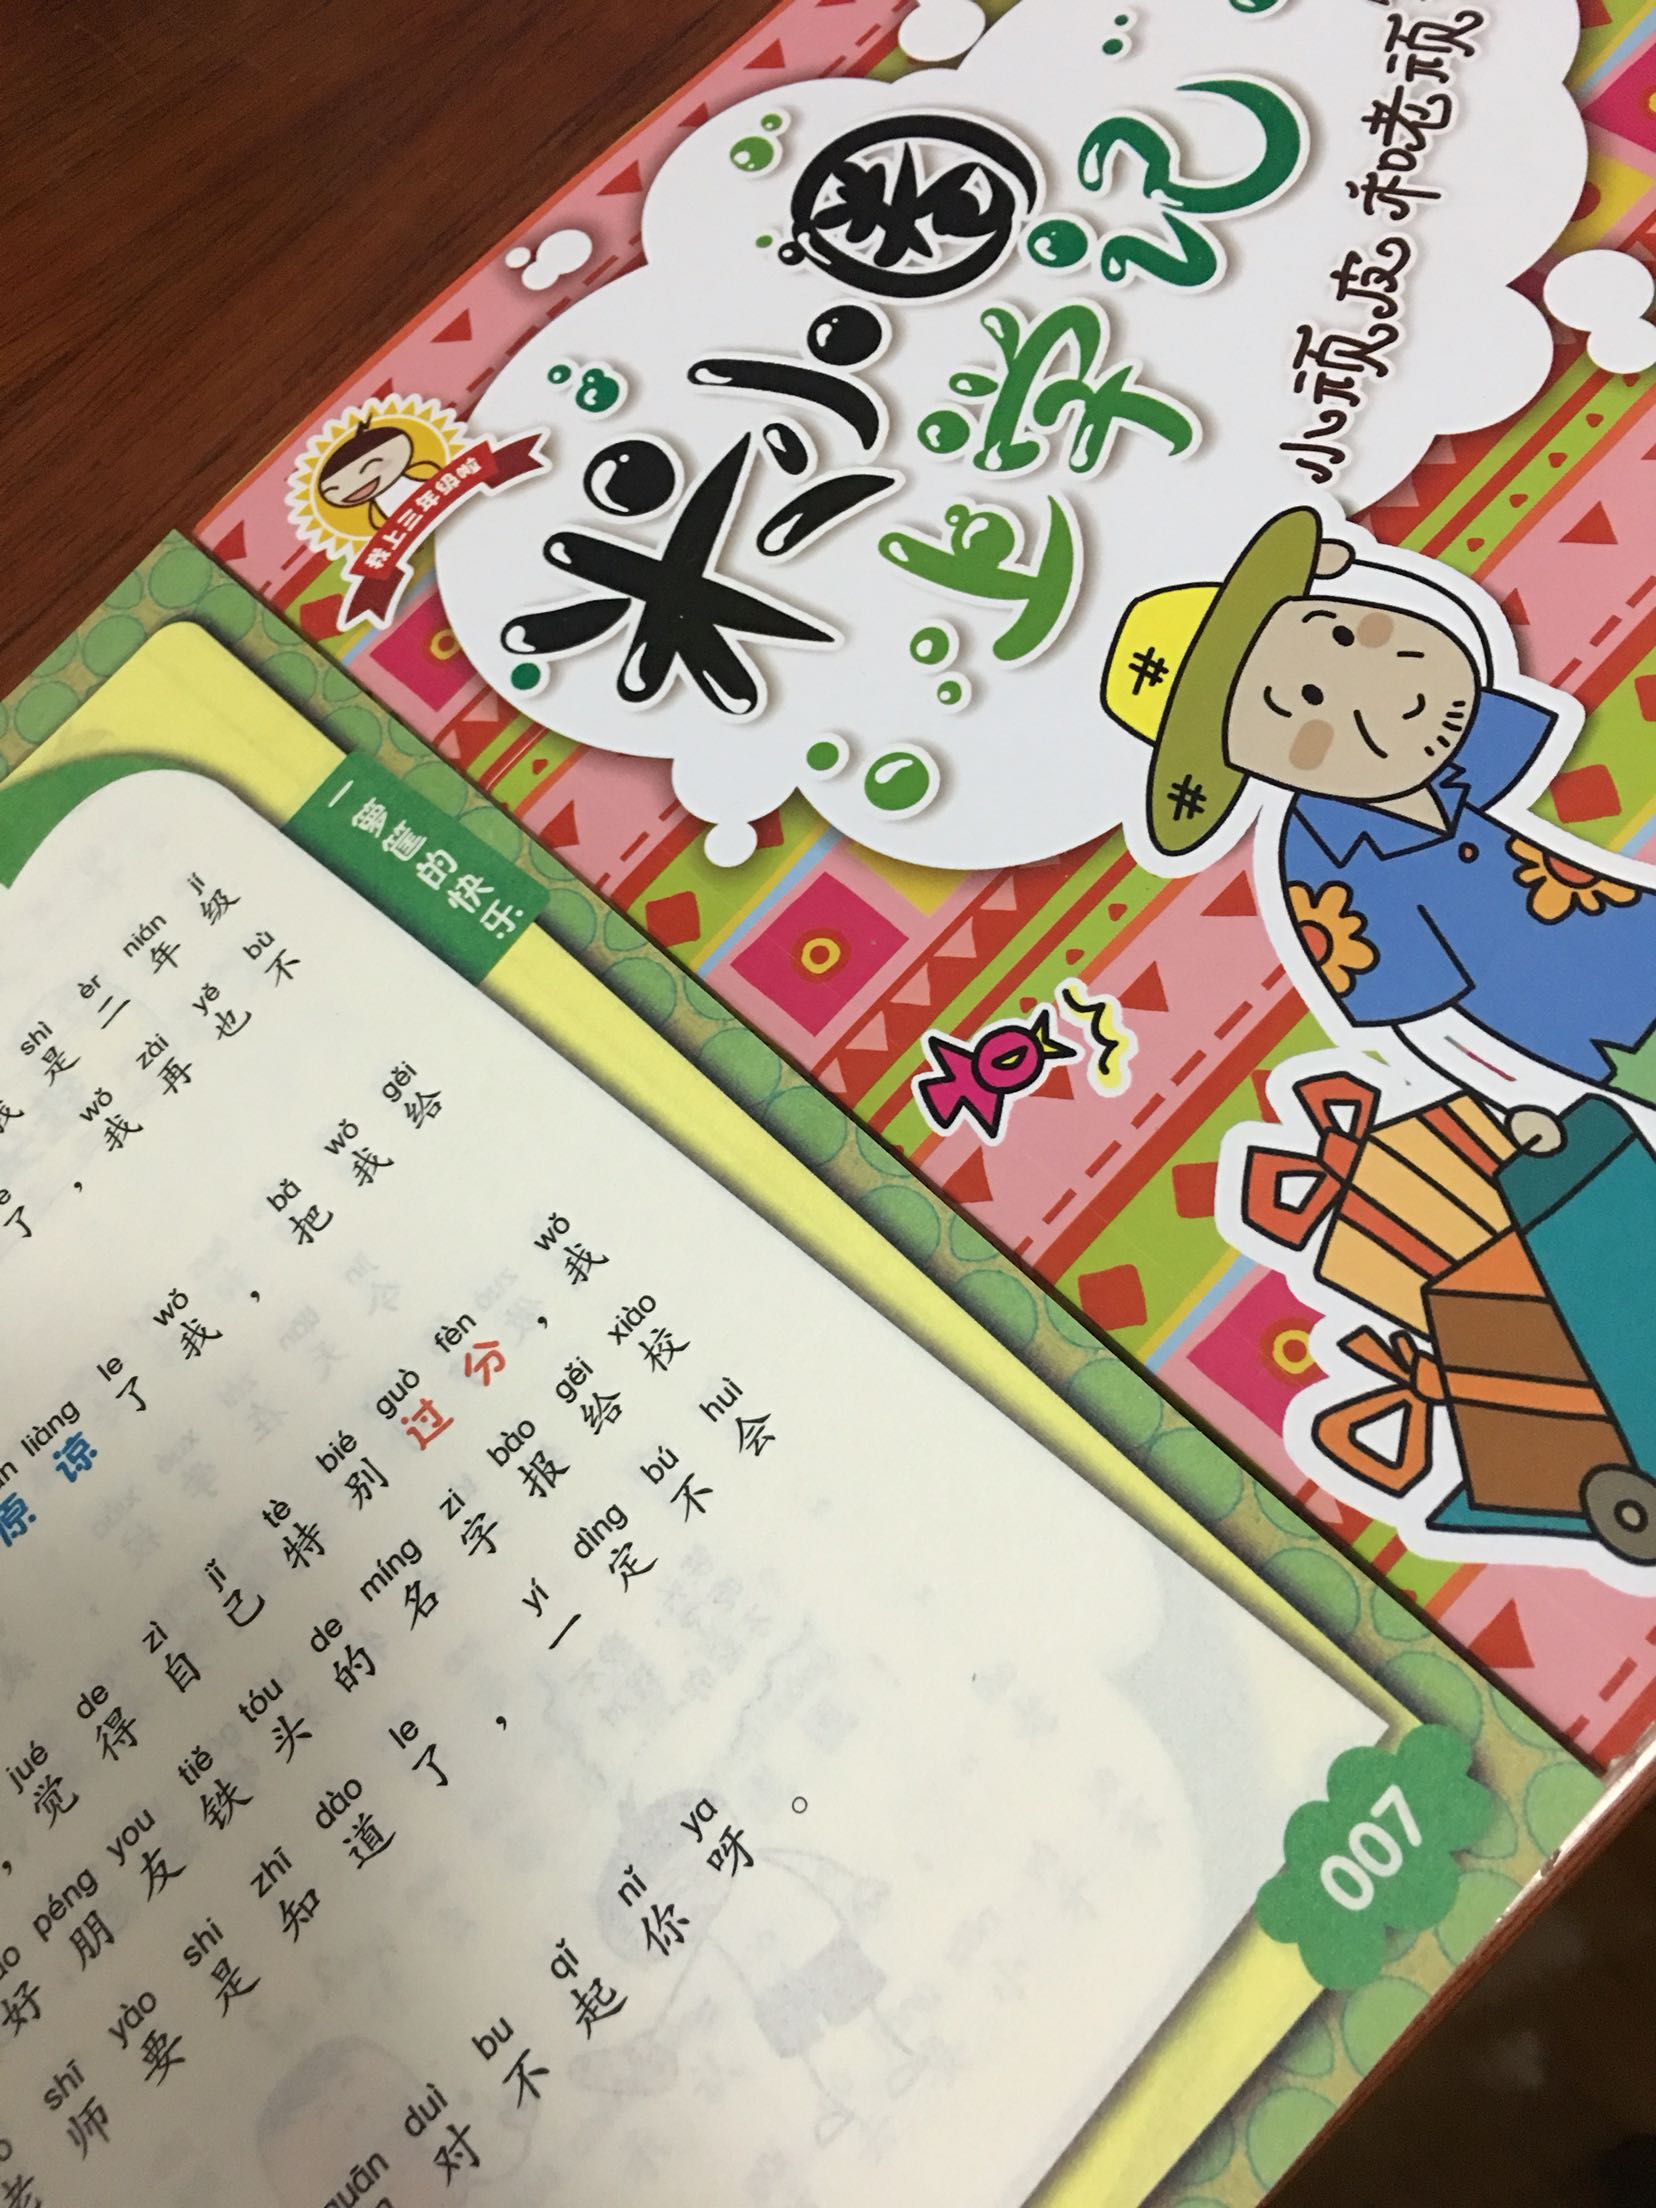 米小圈
上学记
小顽皮和老顽
我上三年级啦
一箩筐的快乐
shì èr nián jí
我是二年级
wǒ zài yě bù
了，我再也不
liàng le wǒ bǎ wǒ gěi
原谅了我，把我给
jué de zì jǐ tè bié guò fèn wǒ
，觉得自己特别过分，我
péng you tiě tóu de míng zi bào gěi xiào
好朋友铁头的名字报给校
shī yào shi zhī dào le yí dìng bú huì
老师要是知道了，一定不会
duì bu qǐ nǐ ya
对不起你呀。
007